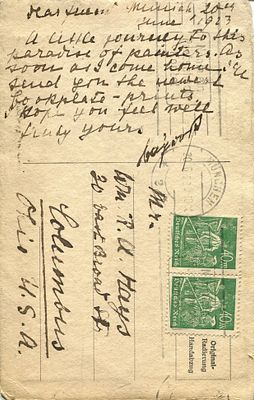 dear Munich 20th
June 1923
A little journey to this
paradise of painters. As
soon as I come home I'll
send you the newest
bookplate-prints.
I hope you feel well
truly yours
Mr.
Wm R. A. Hays
20 East Broad St.
Columbus
Ohio U.S.A.
MÜNCHEN
40 m
Deutsches Reich
40 m
Deutsches Reich
Original-
Radierung
Handabzug